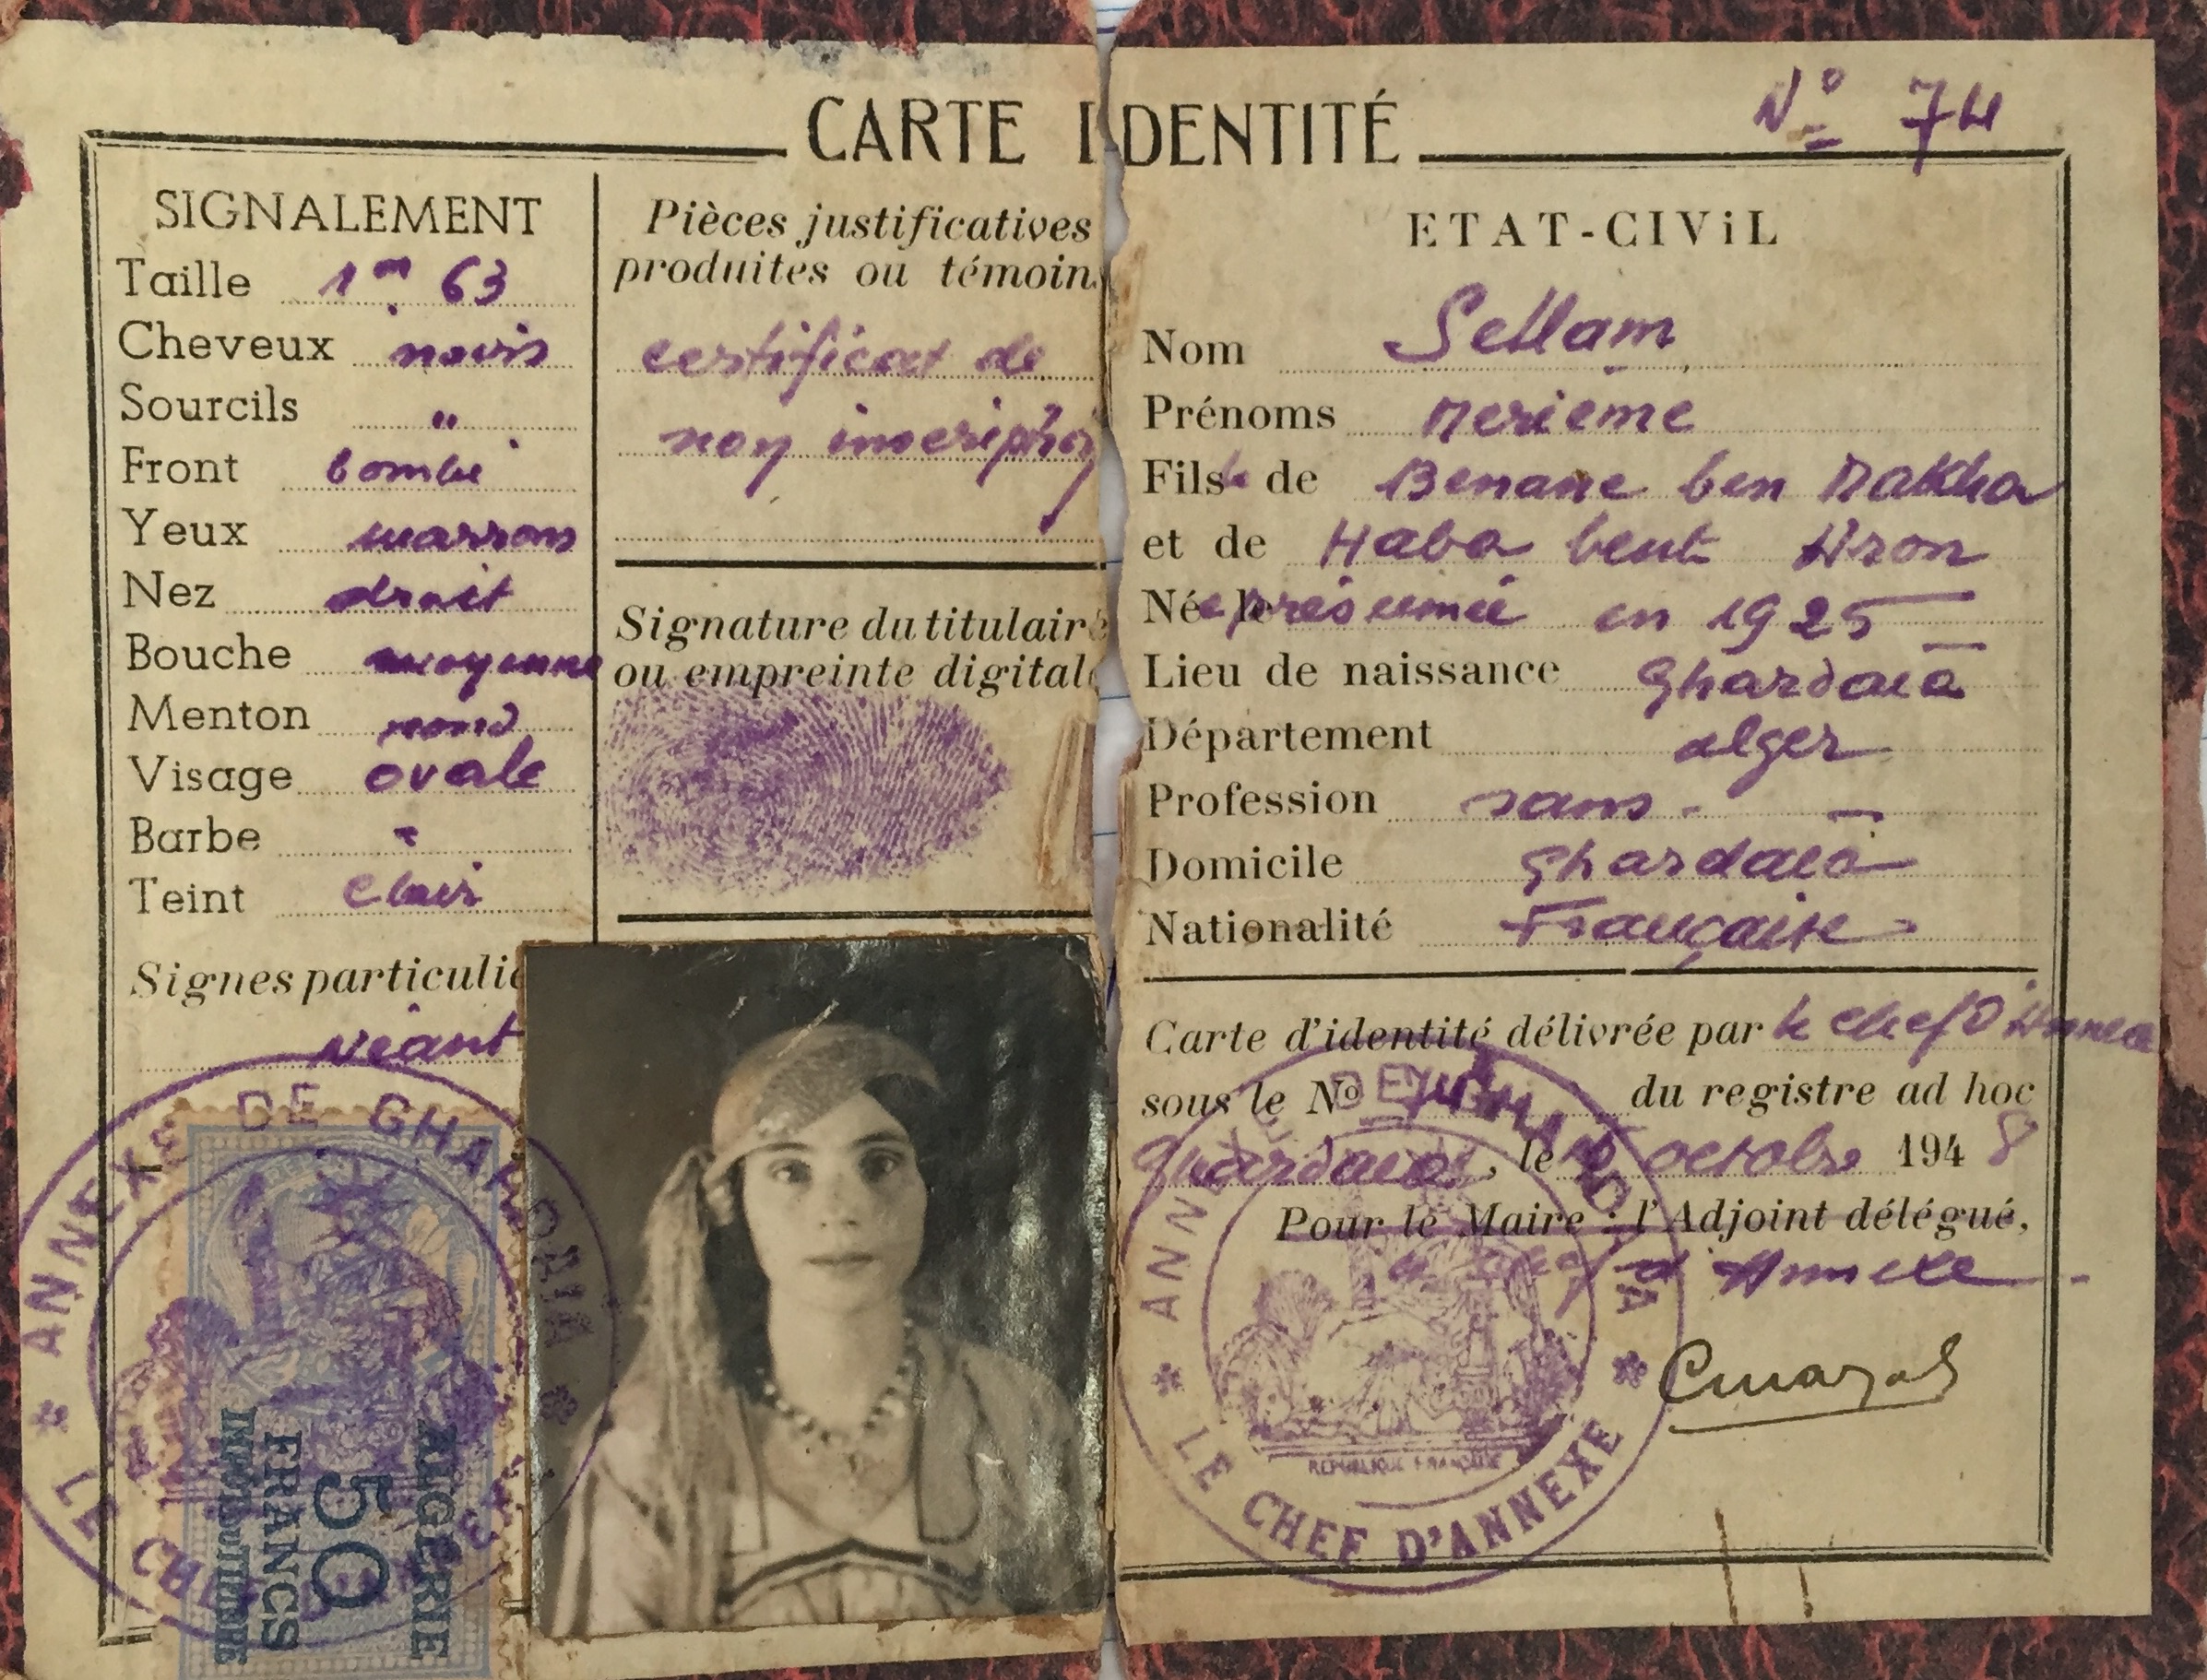 CARTE IDENTITÉ
Nº 74
SIGNALEMENT
Taille 1m 63
Cheveux noirs
Sourcils "
Front bombé
Yeux marrons
Nez droit
Bouche moyenne
Menton rond
Visage ovale
Barbe -
Teint clair
Signes particulie
Néant
Pièces justificatives
produites ou témoin
certificat de
non inscription
Signature du titulaire
ou empreinte digitale
ETAT-CIVIL
Nom Sellam
Prénoms Merieme
Fille de Benane ben Makha
et de Haba bent Aron
Née le présumée en 1925
Lieu de naissance Ghardaïa
Département Alger
Profession sans -
Domicile Ghardaïa
Nationalité Française
Carte d'identité délivrée par le chef d'Annexe
sous le Nº 74 du registre ad hoc
Ghardaïa, le octobre 1948
Pour le Maire : l'Adjoint délégué,
Le chef d'Annexe
ANNEXE DE GHARDAIA
LE CHEF D'ANNEXE
ALGERIE
50
FRANCS
ANNEXE DE GHARDAIA
LE CHEF D'ANNEXE
REPUBLIQUE FRANÇAISE